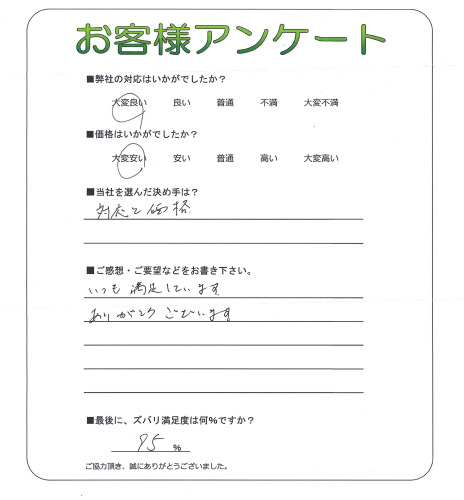 お客様アンケート
■弊社の対応はいかがでしたか？
大変良い 良い 普通 不満 大変不満
■価格はいかがでしたか？
大変安い 安い 普通 高い 大変高い
■当社を選んだ決め手は？
対応と価格
■ご感想・ご要望などをお書き下さい。
いつも満足しています
ありがとうございます
■最後に、ズバリ満足度は何%ですか？
95 %
ご協力頂き、誠にありがとうございました。